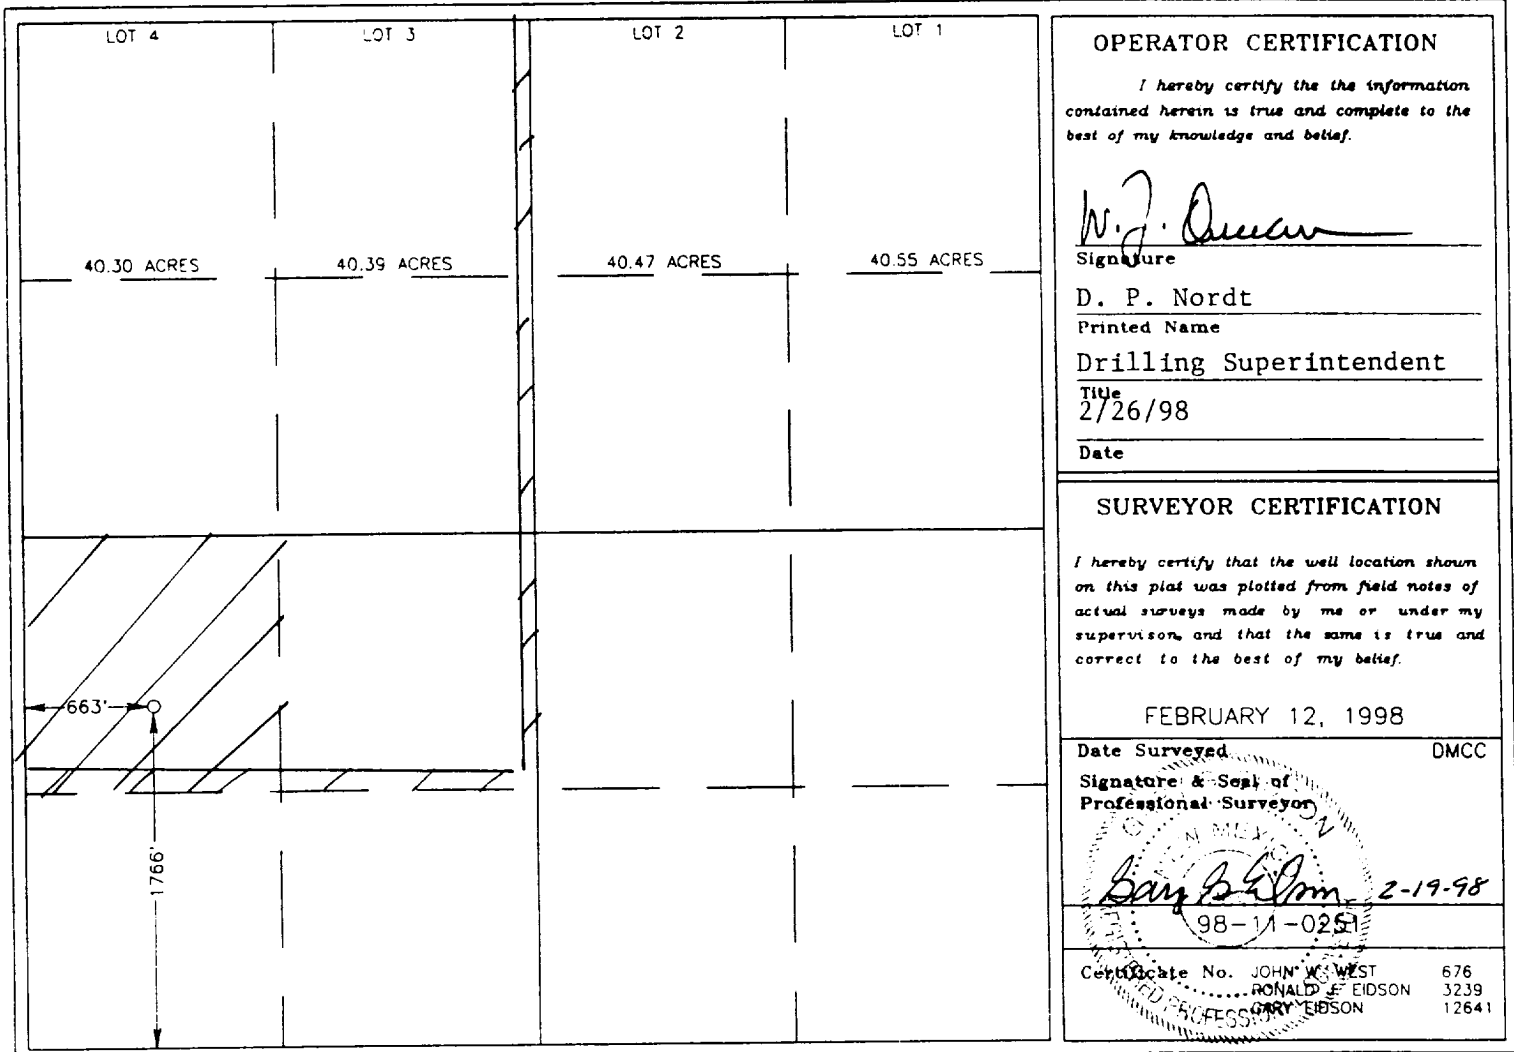 LOT 4 LOT 3 LOT 2 LOT 1
40.30 ACRES 40.39 ACRES 40.47 ACRES 40.55 ACRES
663'
1766'
OPERATOR CERTIFICATION
I hereby certify the the information
contained herein is true and complete to the
best of my knowledge and belief.
Signature
D. P. Nordt
Printed Name
Drilling Superintendent
Title
2/26/98
Date
SURVEYOR CERTIFICATION
I hereby certify that the well location shown
on this plat was plotted from field notes of
actual surveys made by me or under my
supervison, and that the same is true and
correct to the best of my belief.
FEBRUARY 12, 1998
Date Surveyed DMCC
Signature & Seal of
Professional Surveyor
NEW MEXICO
Gary G Eidson 2-19-98
98-11-0251
Certificate No. JOHN W. WEST 676
RONALD J. EIDSON 3239
GARY EIDSON 12641